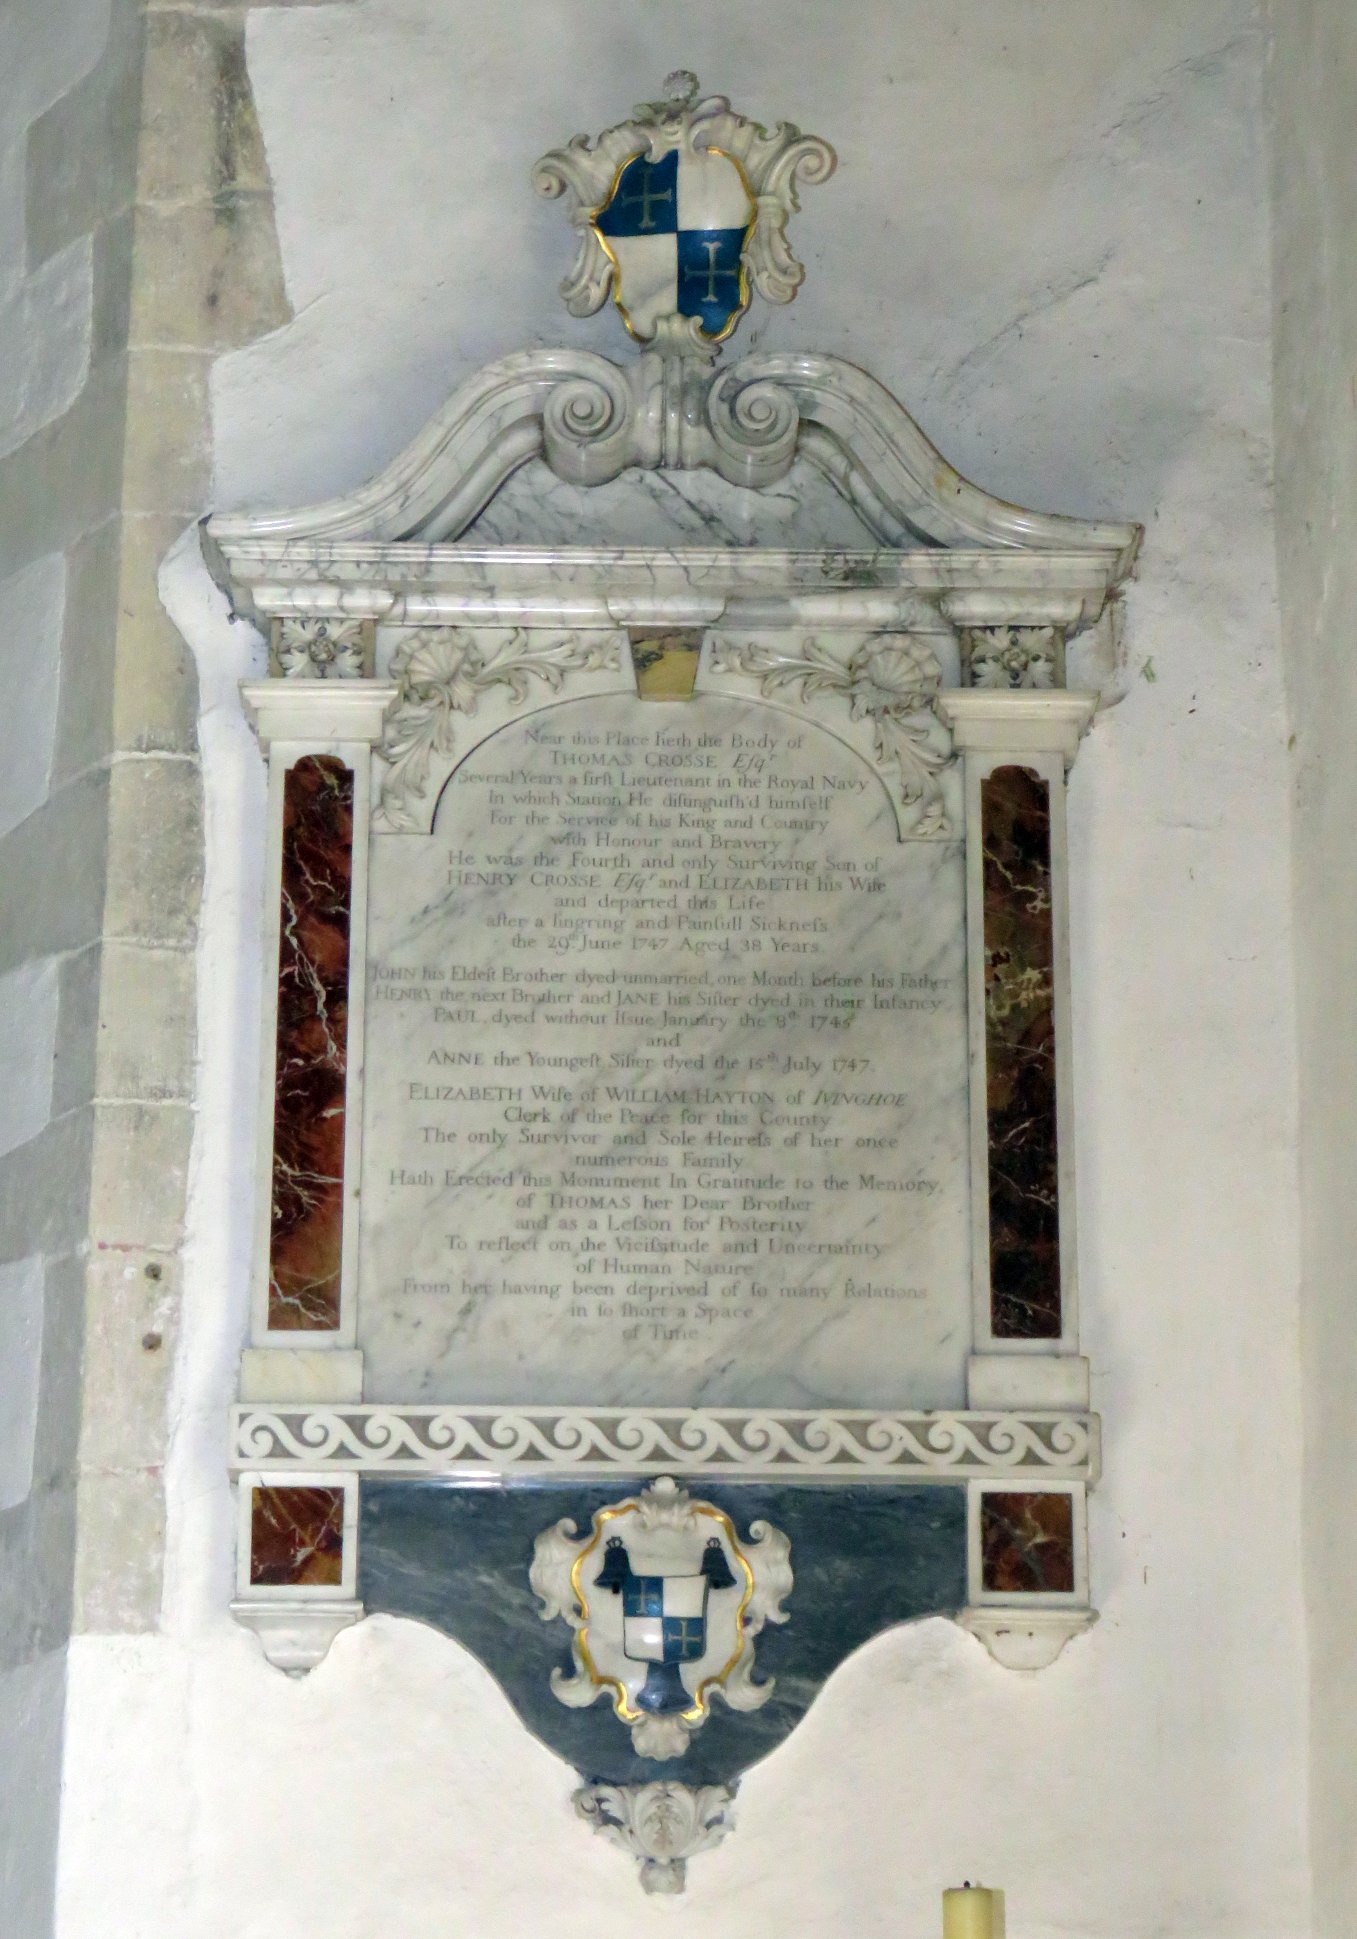 Near this Place lieth the Body of
THOMAS CROSSE Esqr
Several Years a first Lieutenant in the Royal Navy
In which Station He distinguish'd himself
For the Service of his King and Country
with Honour and Bravery
He was the Fourth and only Surviving Son of
HENRY CROSSE Esqr and ELIZABETH his Wife
and departed this Life
after a lingring and Painfull Sickneſs
the 29th June 1747 Aged 38 Years
JOHN his Eldeſt Brother dyed unmarried one Month before his Father
HENRY the next Brother and JANE his Siſter dyed in their Infancy
PAUL dyed without Iſsue January the 8th
and
ANNE the Youngeſt Siſter dyed the 15th July 1747.
ELIZABETH Wife of WILLIAM HAYTON of IVINGHOE
Clerk of the Peace for this County
The only Survivor and Sole Heireſs of her once
numerous Family
Hath Erected this Monument In Gratitude to the Memory
of THOMAS her Dear Brother
and as a Leſson for Posterity
To reflect on the Viciſsitude and Uncertainty
of Human Nature
From her having been deprived of ſo many Relations
in ſo ſhort a Space
of Time